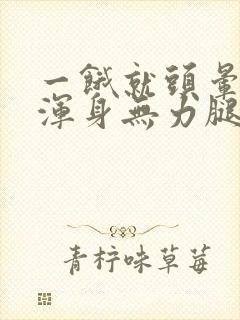 一餓就頭暈
渾身無力腿
青柠味草莓